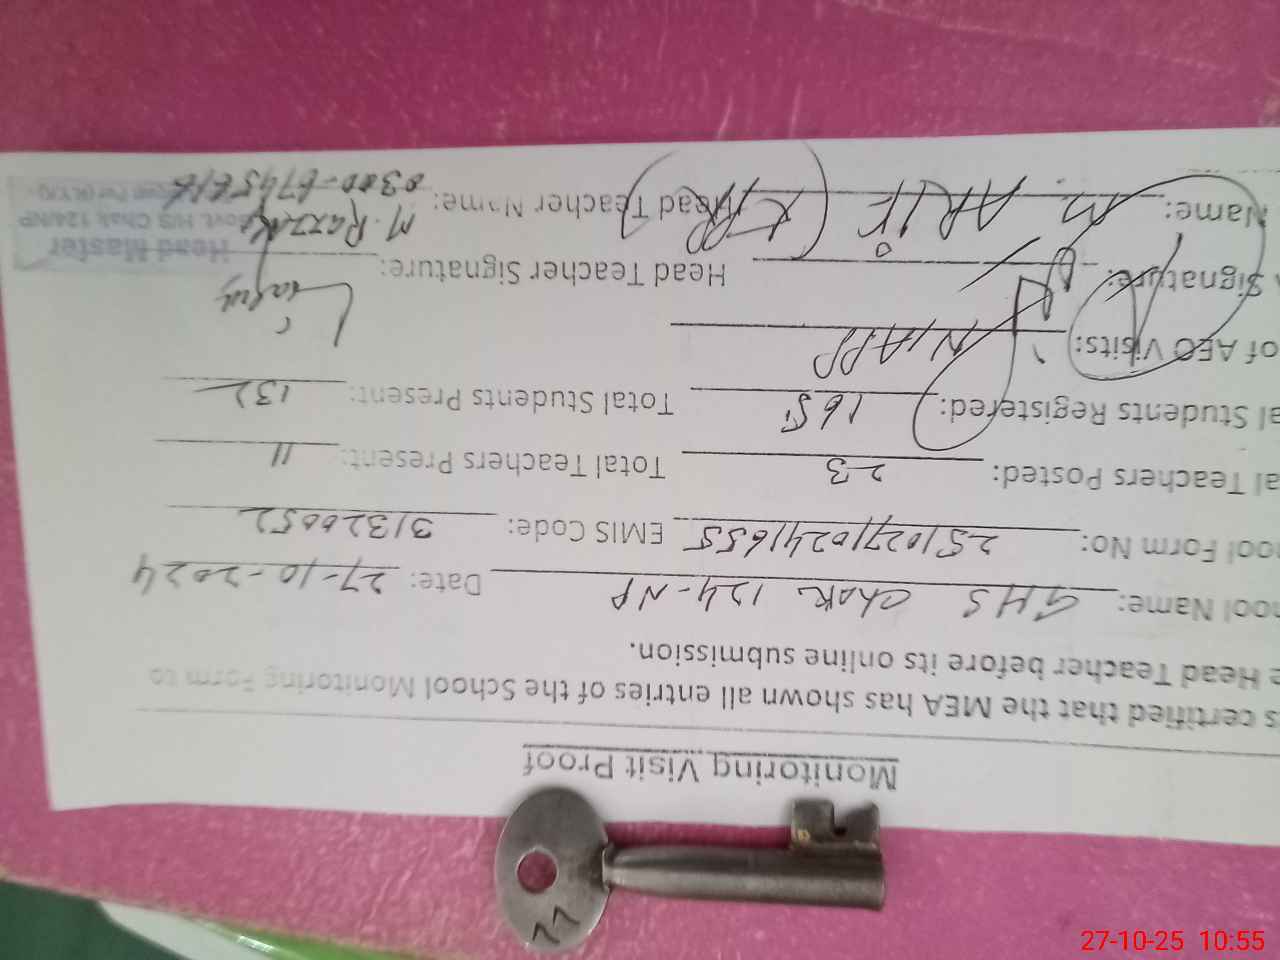 Monitoring Visit Proof
s certified that the MEA has shown all entries of the School Monitoring Form to
e Head Teacher before its online submission.
ool Name: GHS Chak 124-NP Date: 27-10-2024
ool Form No: 25102710241655 EMIS Code: 31320052
al Teachers Posted: 23 Total Teachers Present: 11
al Students Registered: 165 Total Students Present: 132
of AEO Visits:
Signature: Head Teacher Signature:
Name: M. ARIF Head Teacher Name: M. Razzak
Head Master
Govt. H/S Chak 124/NP
0300-
27-10-25 10:55